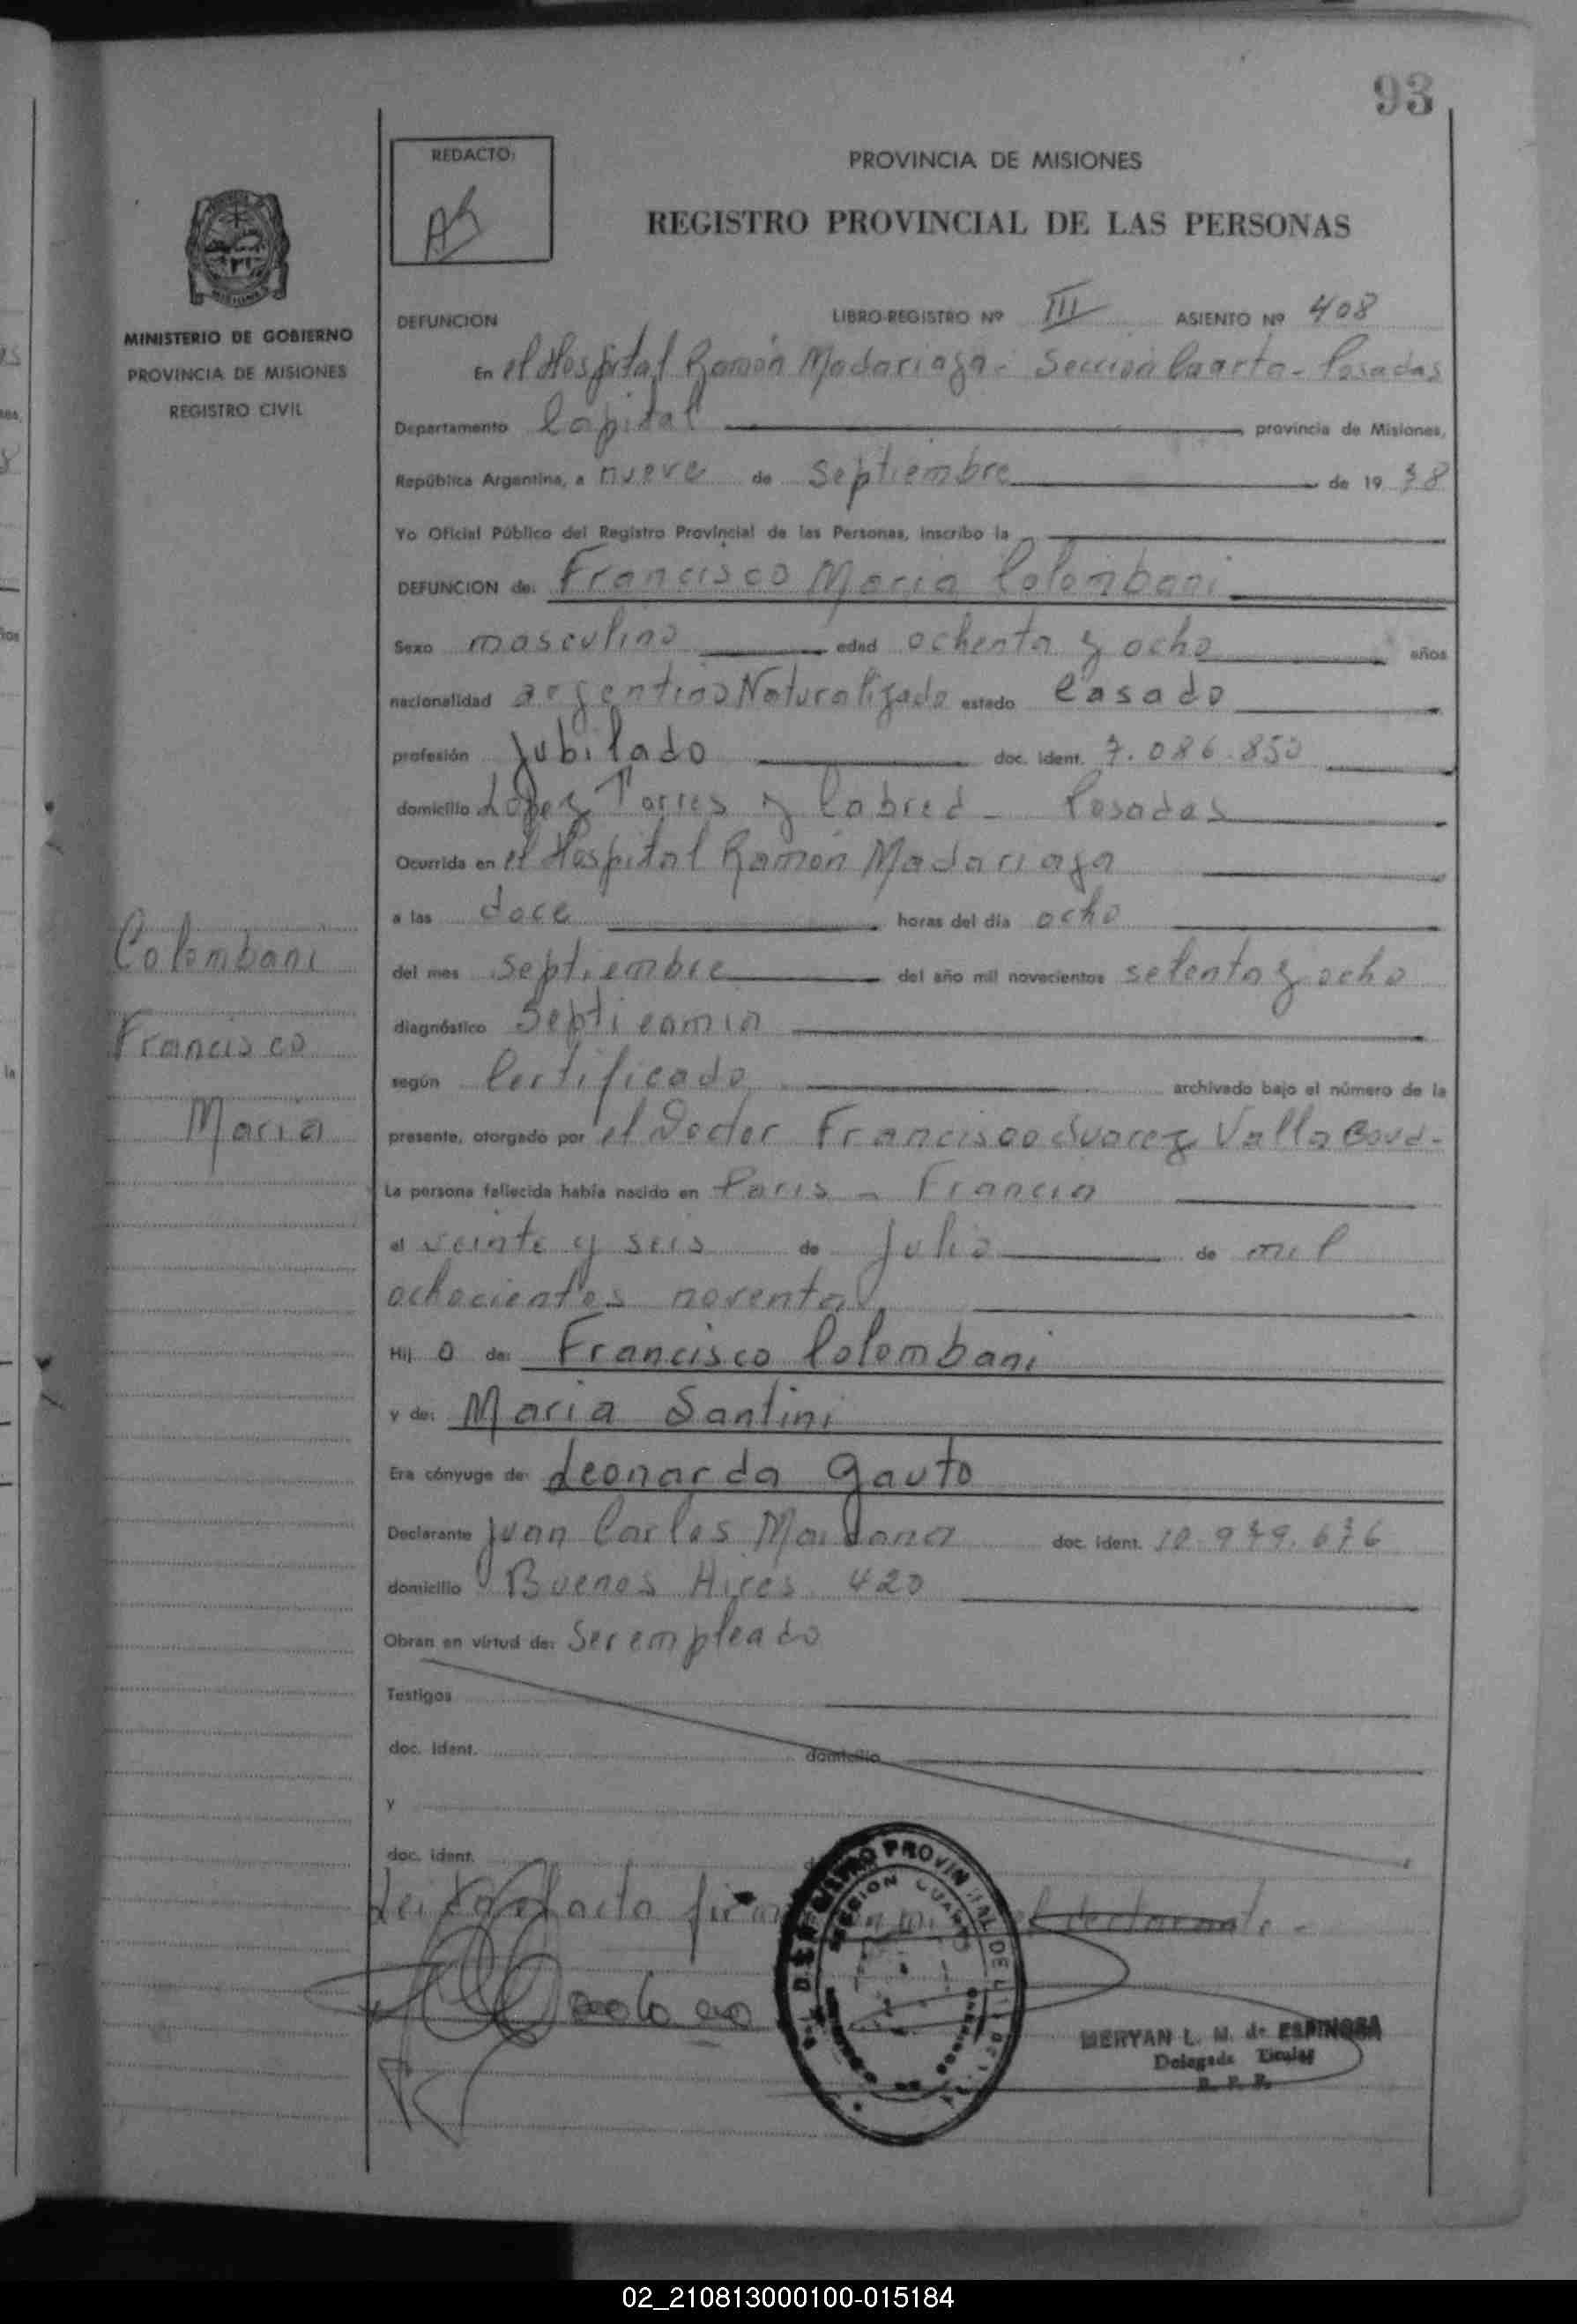 93
REDACTO:
PROVINCIA DE MISIONES
REGISTRO PROVINCIAL DE LAS PERSONAS
MINISTERIO DE GOBIERNO
PROVINCIA DE MISIONES
REGISTRO CIVIL
DEFUNCION LIBRO-REGISTRO Nº III ASIENTO Nº 408
En el Hospital Ramón Madariaga - Sección Cuarta - Posadas
Departamento Capital provincia de Misiones,
República Argentina, a nueve de Septiembre de 19 78
Yo Oficial Público del Registro Provincial de las Personas, inscribo la
DEFUNCION de: Francisco Maria Colombani
Sexo masculino edad ochenta y ocho años
nacionalidad argentino Naturalizado estado Casado
profesión Jubilado doc. ident. 7.086.850
domicilio López Torres y Cabred - Posadas
Ocurrida en el Hospital Ramón Madariaga
a las doce horas del día ocho
Colombani
del mes Septiembre del año mil novecientos setenta y ocho
diagnóstico Septicamia
Francisco
según Certificado archivado bajo el número de la
Maria
presente, otorgado por el Doctor Francisco Suarez Valla
La persona fallecida había nacido en Paris - Francia
el veinte y seis de Julio de mil
ochocientos noventa
Hij o de: Francisco Colombani
y de: Maria Santini
Era cónyuge de: Leonarda Gauto
Declarante Juan Carlos Maidana doc. ident. 10.979.676
domicilio Buenos Aires 420
Obran en virtud de: Ser empleado
Testigos
doc. ident. domicilio
y
doc. ident.
Leida el acta el declarante.-
MERYAN L. M. de ESPINOSA
Delegada Titular
R. P. P.
02_210813000100-015184